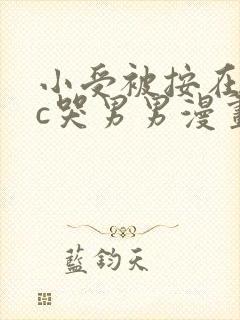 小受被按在
c哭男男漫畫
藍鈞天